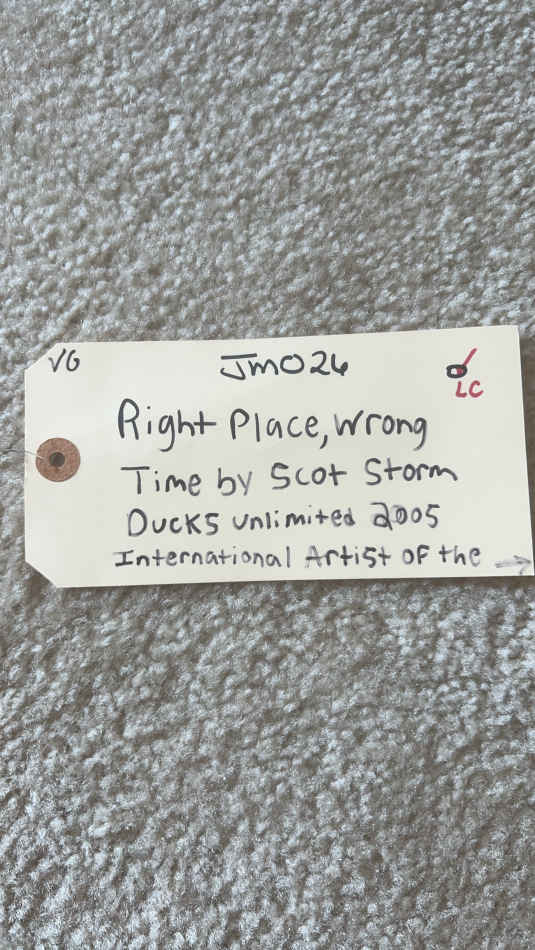 VG JM026
LC
Right Place, Wrong
Time by Scot Storm
Ducks Unlimited 2005
International Artist of the →